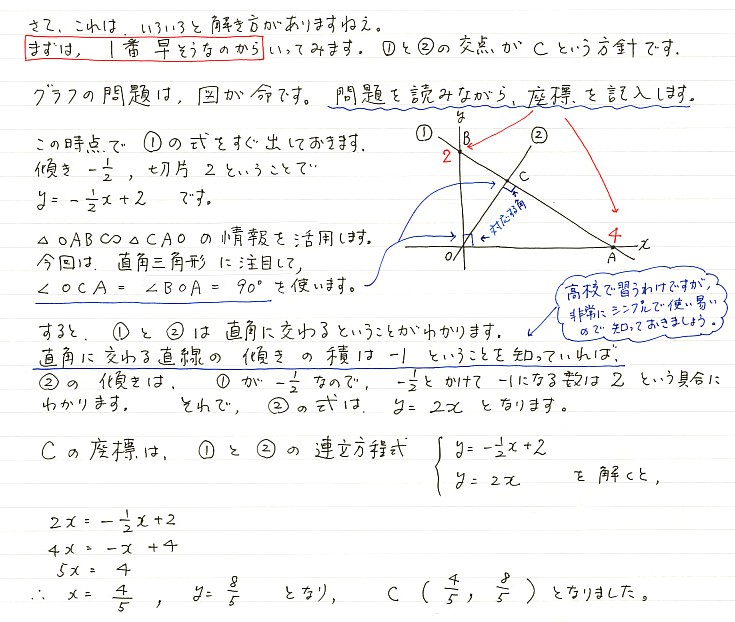 さて、これは、いろいろと解き方がありますねえ。
まずは、1番早そうなのからいってみます。①と②の交点がCという方針です。
グラフの問題は、図が命です。問題を読みながら、座標を記入します。
この時点で①の式をすぐ出しておきます。
傾き -1/2 , 切片 2 ということで
y = -1/2x + 2 です。
① y B 2 ② C 対応する角 O 4 A x
△OAB∽△CAO の情報を活用します。
今回は、直角三角形に注目して、
∠OCA = ∠BOA = 90° を使います。
高校で習うわけですが,
非常にシンプルで使い易い
ので知っておきましょう。
すると、①と②は直角に交わるということがわかります。
直角に交わる直線の傾きの積は -1 ということを知っていれば,
②の傾きは、①が -1/2 なので、-1/2とかけて -1になる数は 2 という具合に
わかります。 それで、②の式は、y = 2x となります。
Cの座標は、①と②の連立方程式 { y = -1/2x + 2
y = 2x を解くと,
2x = -1/2x + 2
4x = -x + 4
5x = 4
∴ x = 4/5 , y = 8/5 となり, C ( 4/5 , 8/5 ) となりました。